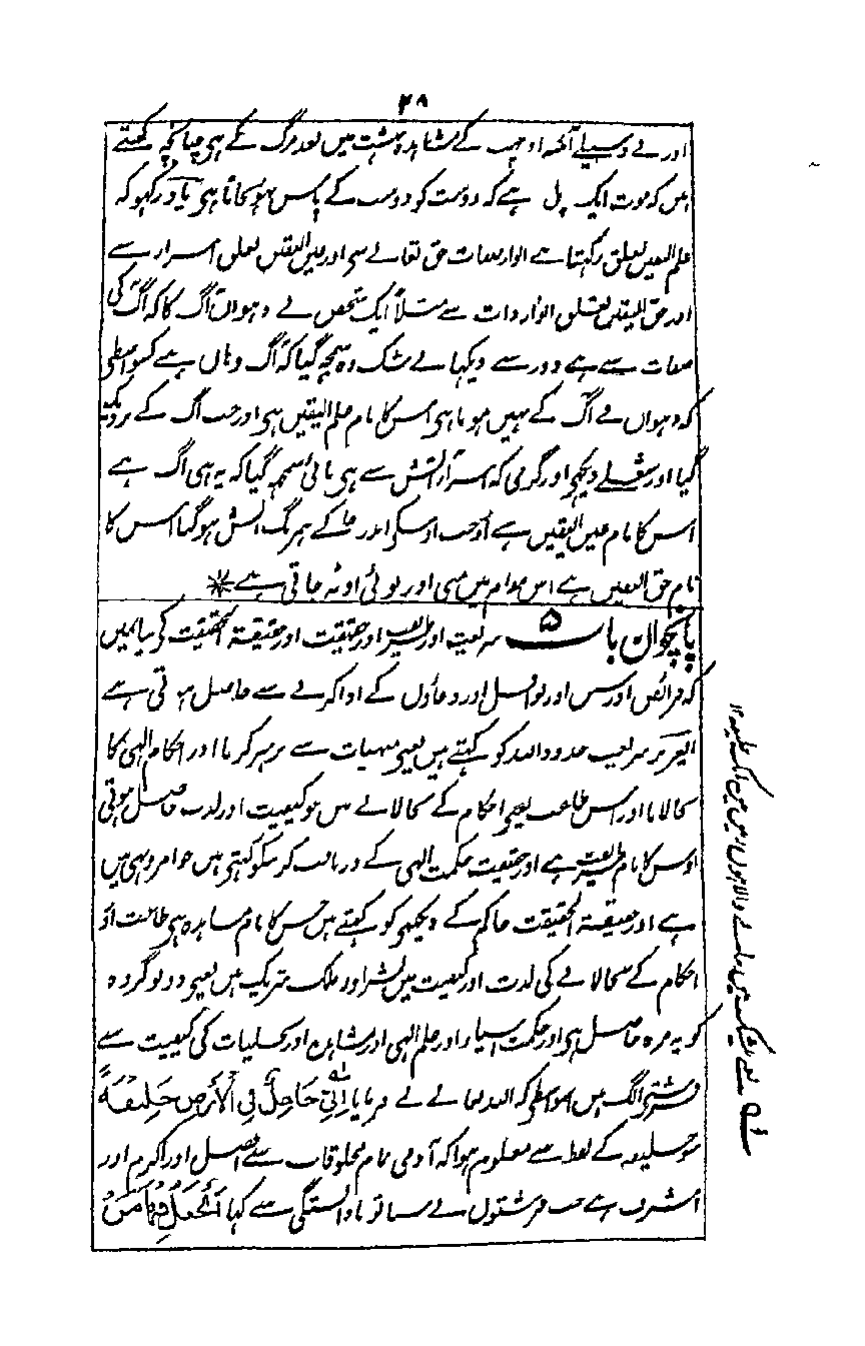 ۲۸
اور بے وسیلے آنکھ اور جہت کے مشاہدہ بہشت میں بعد مرگ کے ہی چنانچہ کہتے
ہیں کہ موت ایک پل ہے کہ دوست کو دوست کے پاس پہونچاتا ہی یاد رکہو کہ
علم الیقین تعلق رکہتا ہے انوار صفات حق تعالے سے اور عین الیقین تعلق اسرار سے
اور حق الیقین تعلق انوار ذات سے مثلاً ایک شخص نے دہواں آگ کا کہ آگ کی
صفات سے ہے دور سے دیکہا بے شک وہ سمجہ گیا کہ آگ وہاں ہے کسواسطی
کہ دہواں بے آگ کے نہیں ہوتا ہی اس کا نام علم الیقین ہی اور جب آگ کے نزدیک
گیا اور شعلے دیکہی اور گرمی کہ اسرار آتش سے ہی پائی سمجہ گیا کہ یہ ہی آگ ہے
اس کا نام عین الیقین ہے اور جب اوسکی اندر جا کے ہمرنگ آتش ہو گیا اس کا
نام حق الیقین ہے اس مقام میں منی اور توئی اوٹہ جاتی ہے
پانچواں باب ۵ شریعت اور طریقت اور حقیقت اور حقیقۃ الحقیقت کی بیانمیں
کہ فرائض اور سنن اور نوافل اور دعاؤں کے ادا کرنے سے حاصل ہوتی ہے
العزیز شریعت حدود اللہ کو کہتے ہیں یعنی منہیات سے پرہیز کرنا اور احکام الہی کا
بجا لانا اور اس طاعت یعنی احکام کے بجا لانے میں جو کیفیت اور لذت حاصل ہوتی
اوس کا نام طریقت ہے اور حقیقت حکمت الہی کے دریافت کرنیکو کہتی ہیں جو امر و نہی میں
ہے اور حقیقۃ الحقیقت حاکم کے دیکہنی کو کہتے ہیں جس کا نام مشاہدہ ہی طاعت اور
احکام کے بجا لانے کی لذت اور کیفیت میں بشر اور ملک شریک ہیں یعنی دونو گروہ
کو یہ مزہ حاصل ہی اور حکمت اشیاء اور علم الہی اور مشاہدہ اور تجلیات کی کیفیت سے
فرشتی الگ ہیں اسواسطی کہ اللہ تعالے نے فرمایا اِنِّی جَاعِلٌ فِی الْاَرْضِ خَلِیْفَۃً
سو خلیفہ کے لفظ سے معلوم ہوا کہ آدمی تمام مخلوقات سے افضل اور اکرم اور
اشرف ہے جب فرشتوں نے نادانستگی سے کہا اَتَجْعَلُ فِیْہَا مَنْ
یعنی بیشک میں بنانے والا ہوں زمین میں ایک خلیفہ ۱۲